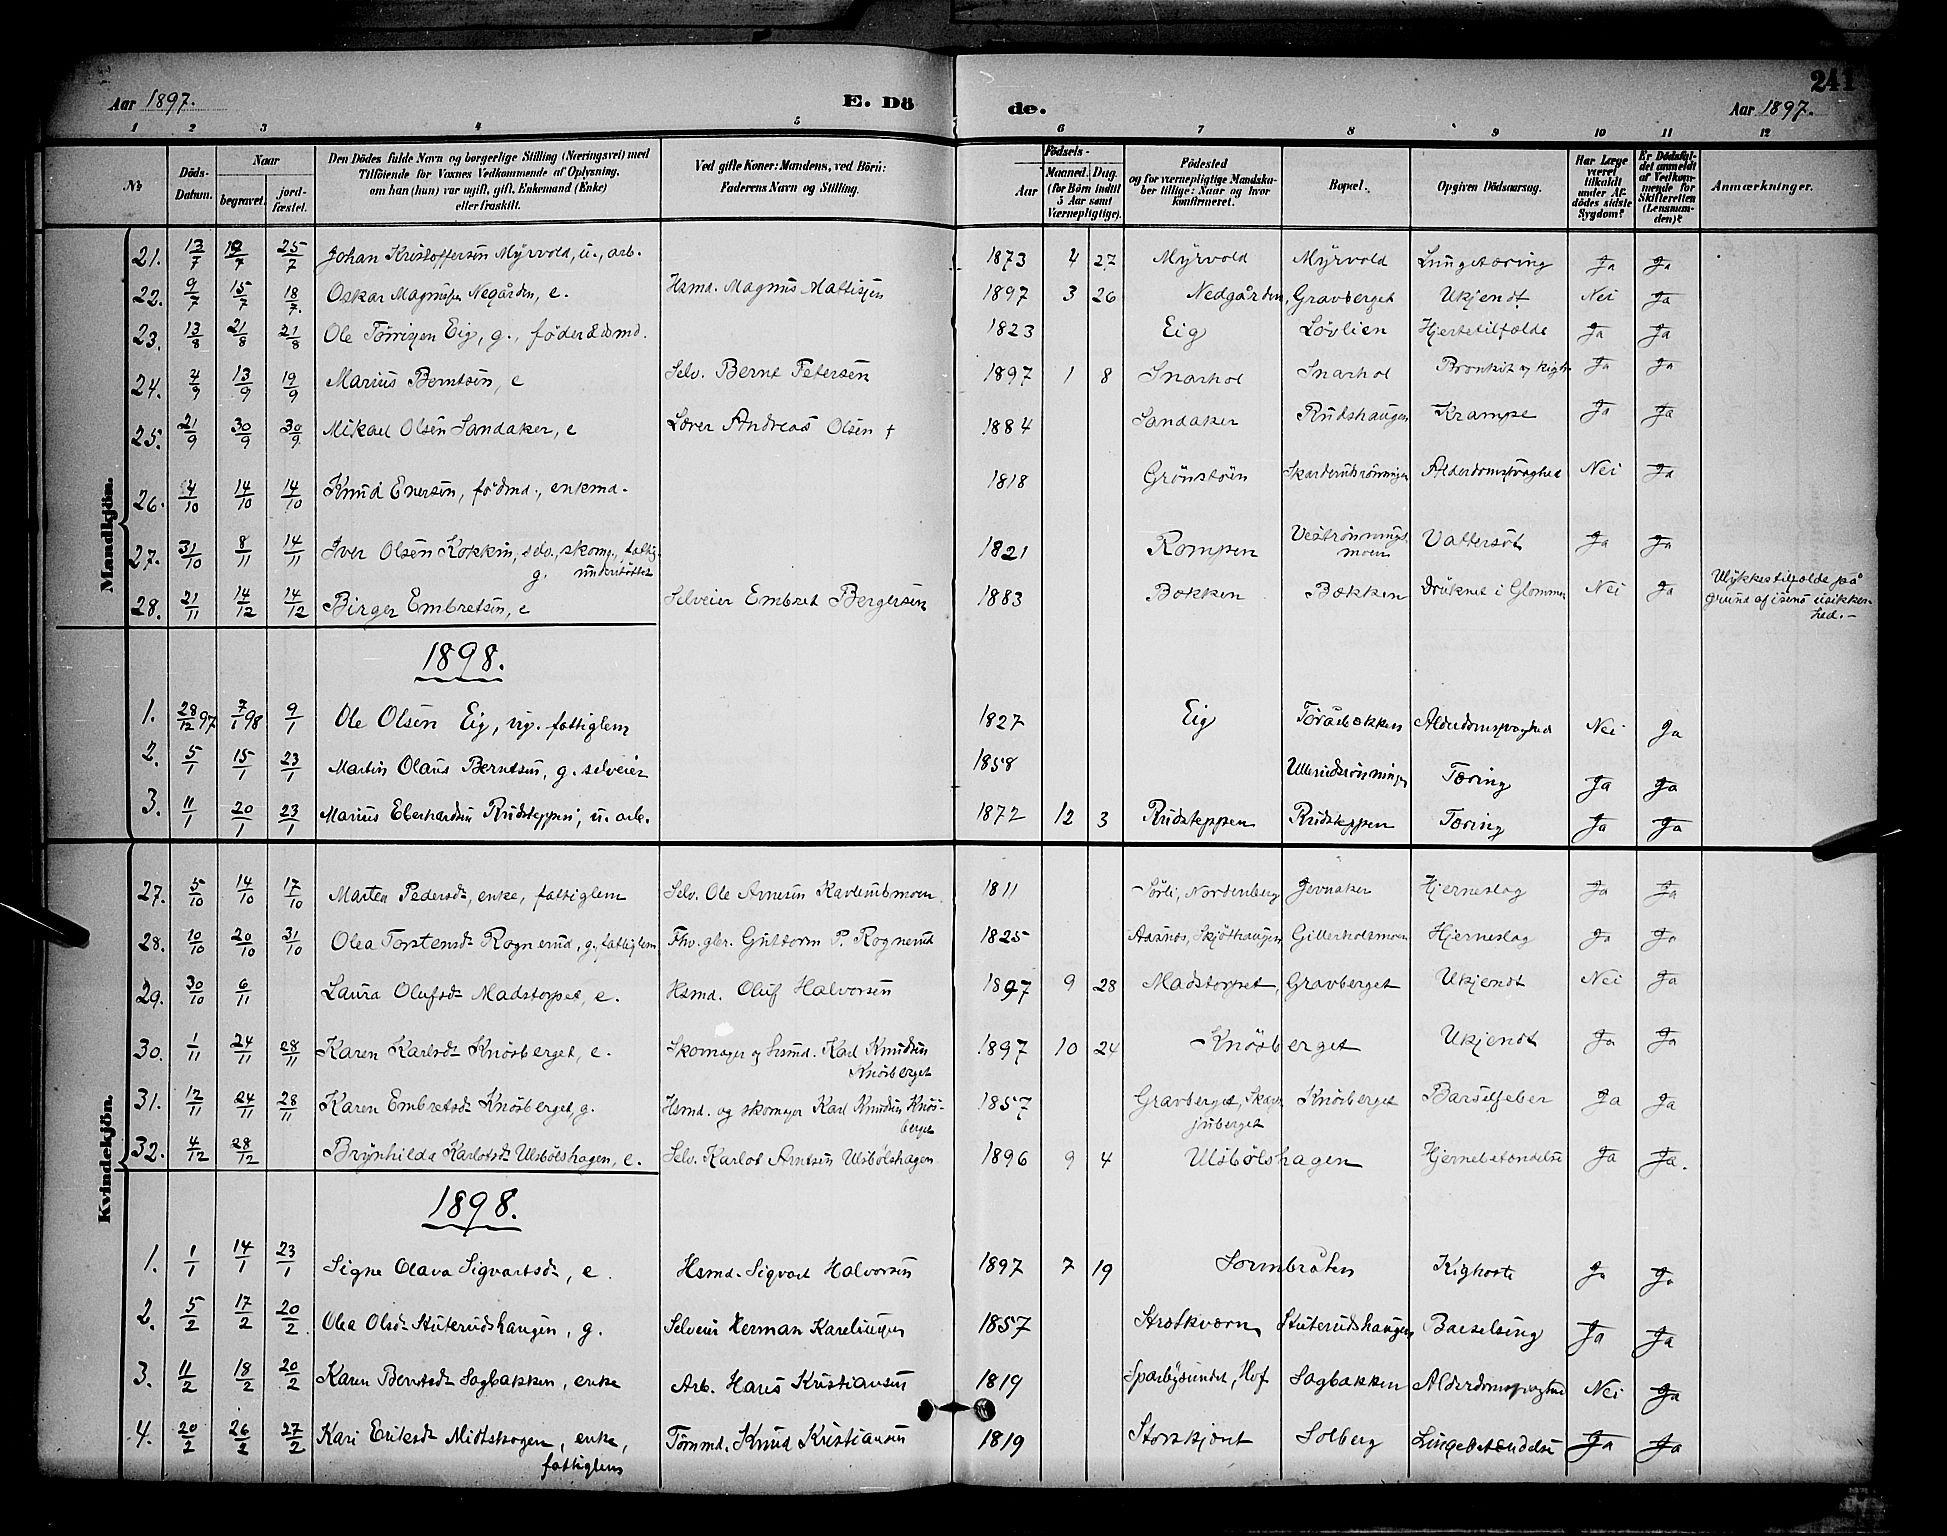 241
Aar 1897. E. Dö de. Aar 1897.
1 2 3 4 5 6 7 8 9 10 11 12
№ Döds-Datum. Naar begravet. jord-fæstet. Den Dödes fulde Navn og borgerlige Stilling (Næringsvei) med Tilföiende for Voxnes Vedkommende af Oplysning, om han (hun) var ugift, gift, Enkemand (Enke) eller fraskilt. Ved gifte Koner: Mandens, ved Börn: Faderens Navn og Stilling. Födsels- Aar Maaned. Dag. (for Börn indtil 5 Aar samt Værnepligtige). Födested og for værnepligtige Mandskaber tillige: Naar og hvor konfirmeret. Bopæl. Opgiven Dödsaarsag. Har Læge været tilkaldt under Afdödes sidste Sygdom? Er Dödsfaldet anmeldt af Vedkommende for Skifteretten (Lensmanden)? Anmærkninger.
Mandkjön.
21. 13/7 19/7 25/7 Johan Kristoffersen Myrvold, u., arb. 1873 4 27 Myrvold Myrvold Lungetæring Ja Ja
22. 9/7 15/7 18/7. Oskar Magnussen Negården, e. Hsmd. Magnus Mattisen 1897 3 26 Nedgården, Gravberget Ukjendt Nei Ja
23. 13/8 21/8 21/8 Ole Eig, g., föderådsmd. 1823 Eig Lövlien Hjertetilfælde Ja Ja
24. 4/9 13/9 19/9 Marius Berntsen, e Selv. Bernt Petersen 1897 1 8 Snarhol Snarhol Bronkit og kigh. Ja Ja
25. 21/9 30/9 30/9 Mikael Olsen Sandaker, e Lærer Andreas Olsen † 1884 Sandaker Rudshaugen Krampe Ja Ja
26. 4/10 14/10 14/10 Knud Enersen, födmd., enkemd. 1818 Grönstöen Skarderudsrönningen Alderdomssvaghed Nei Ja
27. 31/10 8/11 14/11 Iver Olsen Kokkin, selv., skom., fattig-
g. understöttet 1821 Rompen Veströnnings-
moen Vattersot Ja Ja
28. 21/11 14/12 14/12 Birger Embretsen, e Selveier Embret Bergersen 1883 Bækken Bækken Druknet i Glommen Nei Ja Ulykkestilfælde på
grund af isens usikker-
hed.-
1898.
1. 28/12 97 7/1 98 9/1 Ole Olsen Eig, ug. fattiglem 1827 Eig Toråsbækken Alderdomssvaghed Nei Ja
2. 5/1 15/1 23/1 Martin Olaus Berntsen, g. selveier 1858 Ullerudsrönningen Tæring Ja Ja
3. 11/1 20/1 23/1 Marius Eberhardsen Rudsteppen, u. arb. 1872 12 3 Rudsteppen Rudsteppen Tæring Ja Ja
Kvindekjön.
27. 5/10 14/10 17/10 Martea Pedersdr, enke, fattiglem Selv. Ole Arnesen Kavlerudmoen 1811 Sörli, Nordenberg Jevnaker Hjerneslag Ja Ja
28. 10/10 20/10 31/10 Olea Torstensdr Rognerud, g., fattiglem Fhv. gbr. Guttorm P. Rognerud 1825 Aasnes, Skjöthaugen Gillerholsmoen Hjerneslag Ja Ja
29. 30/10 6/11 Laura Olufsdr Madstorpet, e. Hsmd. Oluf Halvorsen 1897 9 28 Madstorpet, Gravberget Ukjendt Nei Ja
30. 1/11 24/11 28/11 Karen Karlsdr Knösberget, e. Skomager og hsmd. Karl Knudsen
Knösberget 1897 10 24 Knösberget Ukjendt Ja Ja
31. 12/11 24/11 28/11 Karen Embretsdr Knösberget, g. Hsmd. og skomager Karl Knudsen Knös-
berget 1857 Gravberget,
juberget Knösberget Barselfeber Ja Ja
32. 4/12 28/12 Brynhilda Karlotsdr Ulsbölshagen, e. Selv. Karlot Arntsen Ulsbölshagen 1896 9 4 Ulsbölshagen Hjernebetændelse Ja Ja.
1898.
1. 1/1 14/1 23/1 Signe Olava Sigvartsdr, e. Hsmd. Sigvart Halvorsen 1897 7 19 Sormbråten Kighoste Ja Ja
2. 5/2 17/2 20/2. Olea Olsdr Stuterudshaugen, g. Selveier Herman Kareliussen 1857 Stuterudshaugen Barselseng Ja Ja
3. 11/2 18/2 20/2 Karen Berntsdr Sagbakken, enke Arb. Hans Kristiansen 1819 Sparbysundet, Hof Sagbakken Alderdomssvaghed Nei Ja
4. 20/2 26/2 27/2 Kari Eriksdr Midtskogen, enke,
fattiglem Tömmd. Knud Kristiansen 1819 Storskjæret Solberg Lungebetændelse Ja Ja